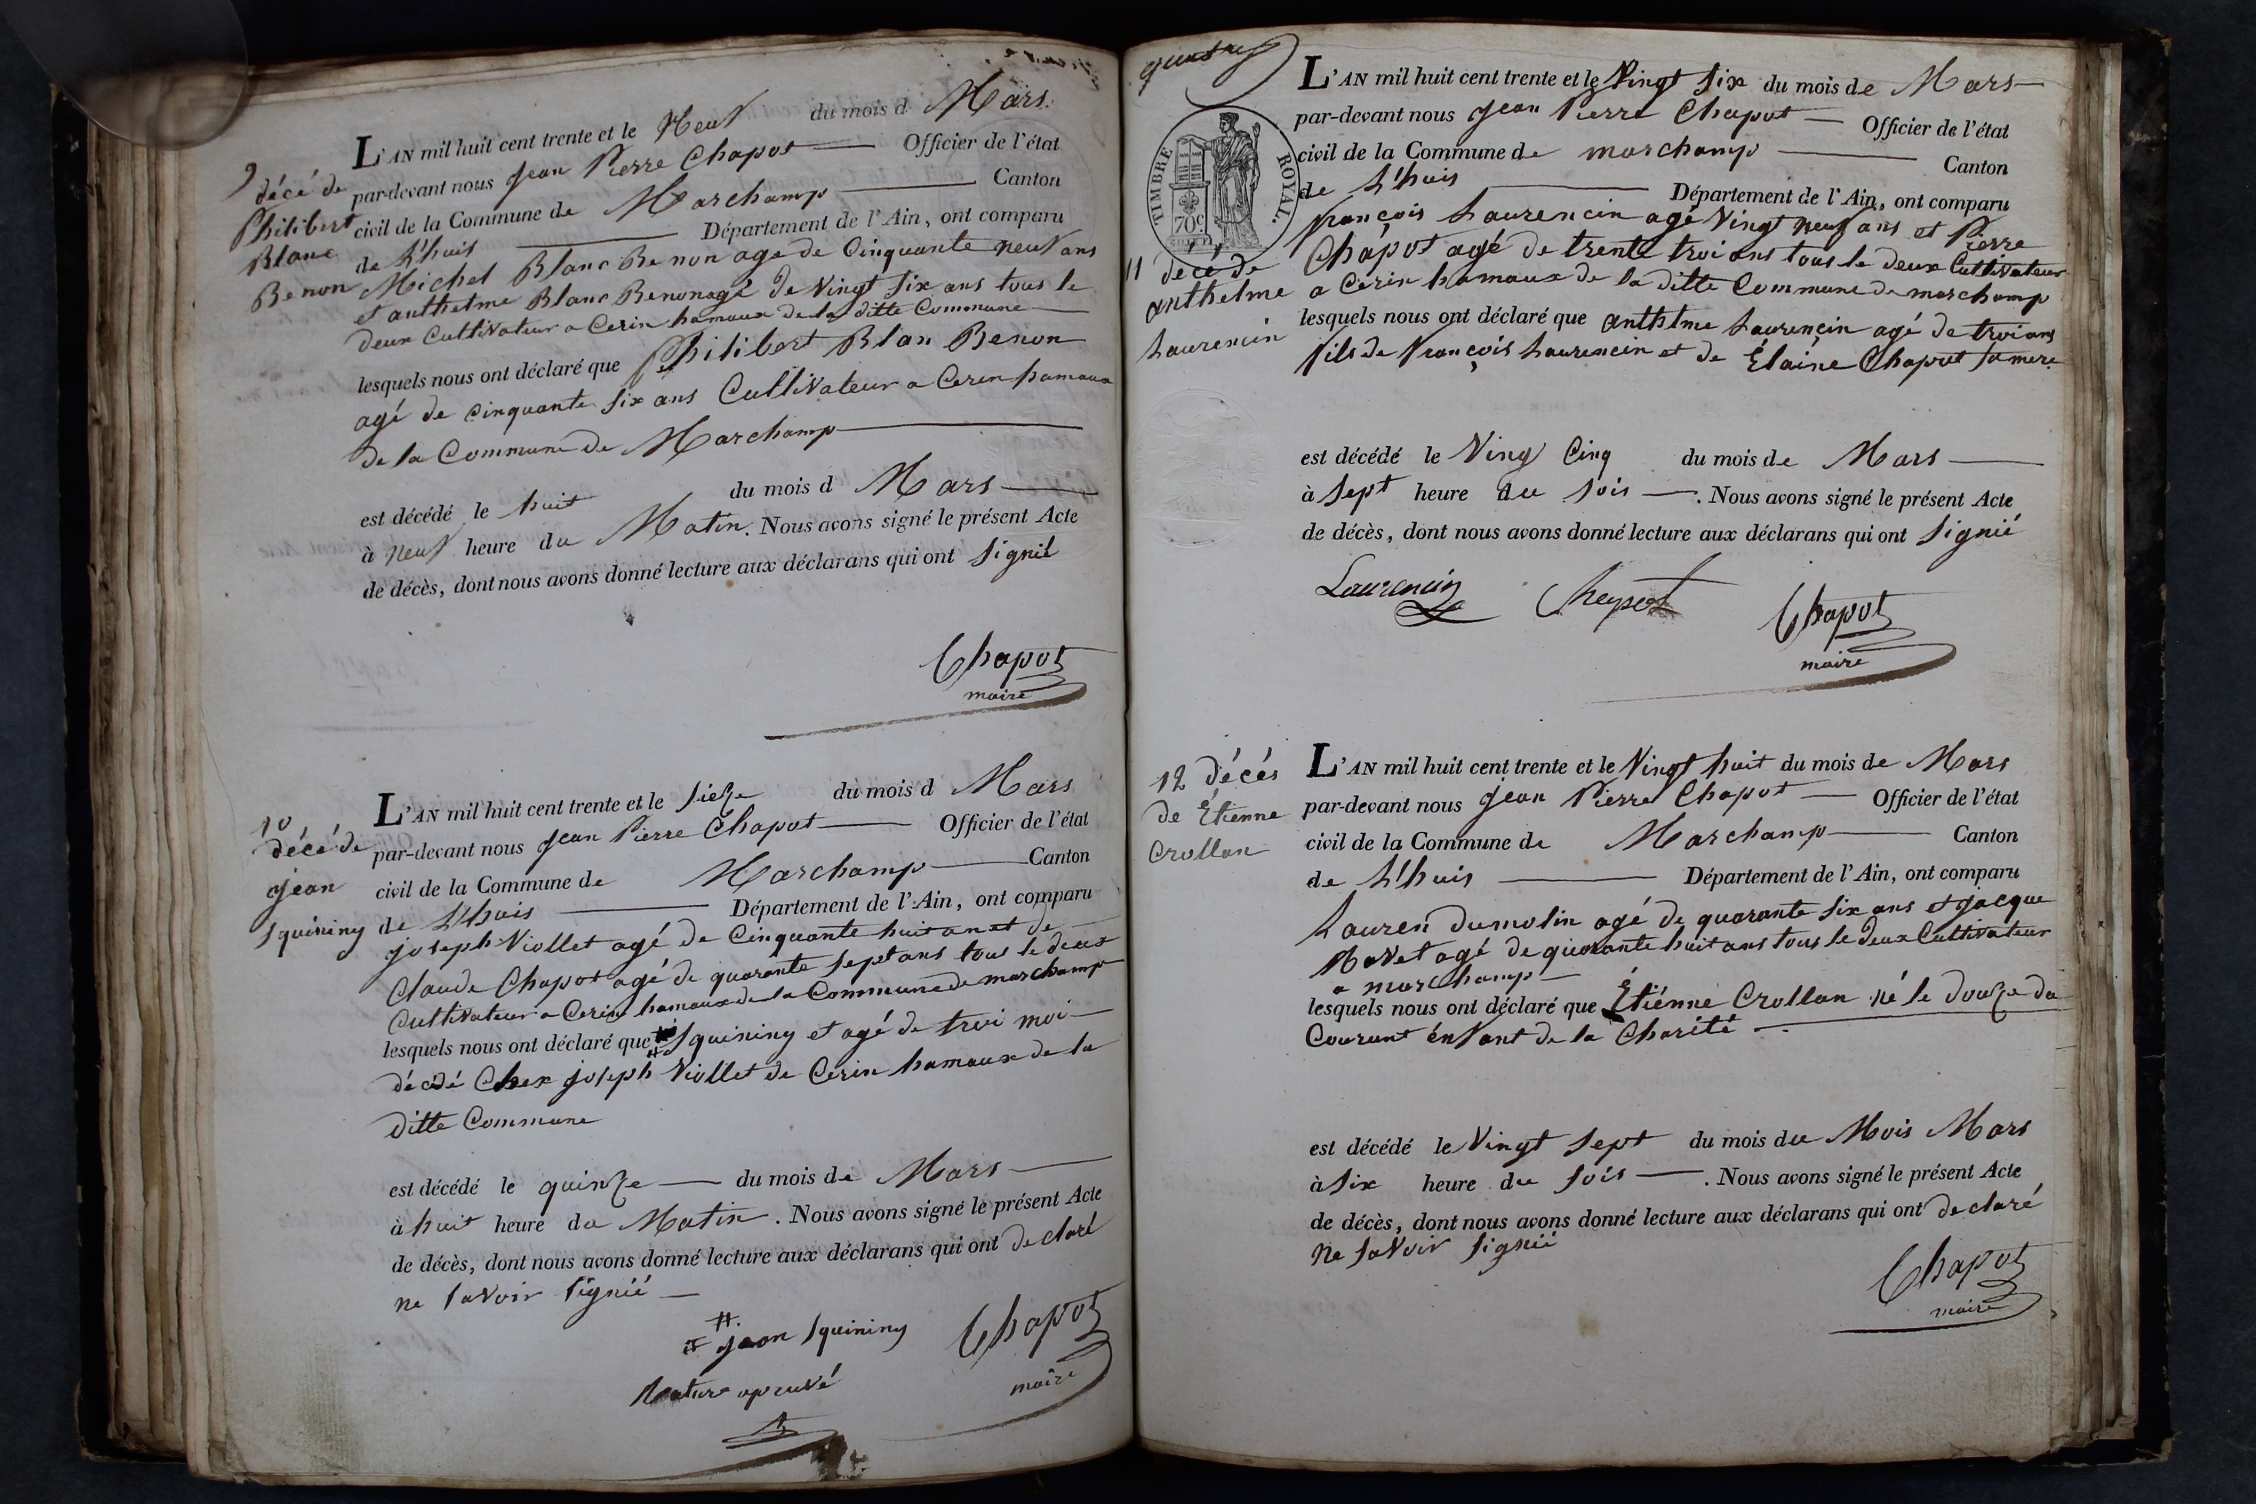 9
décé de
Philibert
Blanc
Benon
L'AN mil huit cent trente et le Neuf du mois d Mars
par-devant nous Jean Pierre Chapot Officier de l'état
civil de la Commune de Marchamp Canton
de L'huis Département de l'Ain, ont comparu
Michel Blanc Benon agé de Cinquante neuf ans
et anthelme Blanc Benon agé de Vingt six ans tous le
deux Cultivateur a Cerin hamaux de la ditte Commune
lesquels nous ont déclaré que Philibert Blan Benon
agé de cinquante six ans Cultivateur a Cerin hamaux
de la Commune de Marchamp
est décédé le huit du mois d Mars
à neuf heure du Matin. Nous avons signé le présent Acte
de décès, dont nous avons donné lecture aux déclarans qui ont signié
Chapot
maire
10
décé de
jean
squininy
L'AN mil huit cent trente et le sieze du mois d Mars
par-devant nous Jean Pierre Chapot Officier de l'état
civil de la Commune de Marchamp Canton
de L'huis Département de l'Ain, ont comparu
joseph Viollet agé de Cinquante huit an et de
Claude Chapot agé de quarante sept ans tous le deux
Cultivateur a Cerin hamaux de la Commune de marchamp
lesquels nous ont déclaré que # squininy et agé de troi moi
décédé Chex joseph Viollet de Cerin hamaux de la
ditte Commune
est décédé le quinze du mois de Mars
à huit heure du Matin. Nous avons signé le présent Acte
de décès, dont nous avons donné lecture aux déclarans qui ont declaré
ne savoir signié
# jean squininy
Chapot
maire
TIMBRE ROYAL.
70c.
11
décé de
anthelme
Laurencin
L'AN mil huit cent trente et le Vingt six du mois de Mars
par-devant nous Jean Pierre Chapot Officier de l'état
civil de la Commune de marchamp Canton
de L'huis Département de l'Ain, ont comparu
françois Laurencin agé Vingt neuf ans et Pierre
Chapot agé de trente troi ans tous le deux Cultivateur
a Cerin hamaux de la ditte Commune de marchamp
lesquels nous ont déclaré que anthelme Laurencin agé de troi ans
fils de françois Laurencin et de Élaine Chapot sa mere
est décédé le Ving Cinq du mois de Mars
à sept heure du soir. Nous avons signé le présent Acte
de décès, dont nous avons donné lecture aux déclarans qui ont signié
Laurencin Chapot Chapot
maire
12 décés
de Étienne
Crollan
L'AN mil huit cent trente et le Vingt huit du mois de Mars
par-devant nous Jean Pierre Chapot Officier de l'état
civil de la Commune de Marchamp Canton
de L'huis Département de l'Ain, ont comparu
Lauren dumolin agé de quarante six ans et jacque
Mavet agé de quarante huit ans tous le deux Cultivateur
a marchamp
lesquels nous ont déclaré que Étiénne Crollan né le douze du
Courant énfant de la Charité
est décédé le Vingt sept du mois du Mois Mars
à six heure du soir. Nous avons signé le présent Acte
de décès, dont nous avons donné lecture aux déclarans qui ont declaré
ne savoir signié
Chapot
maire